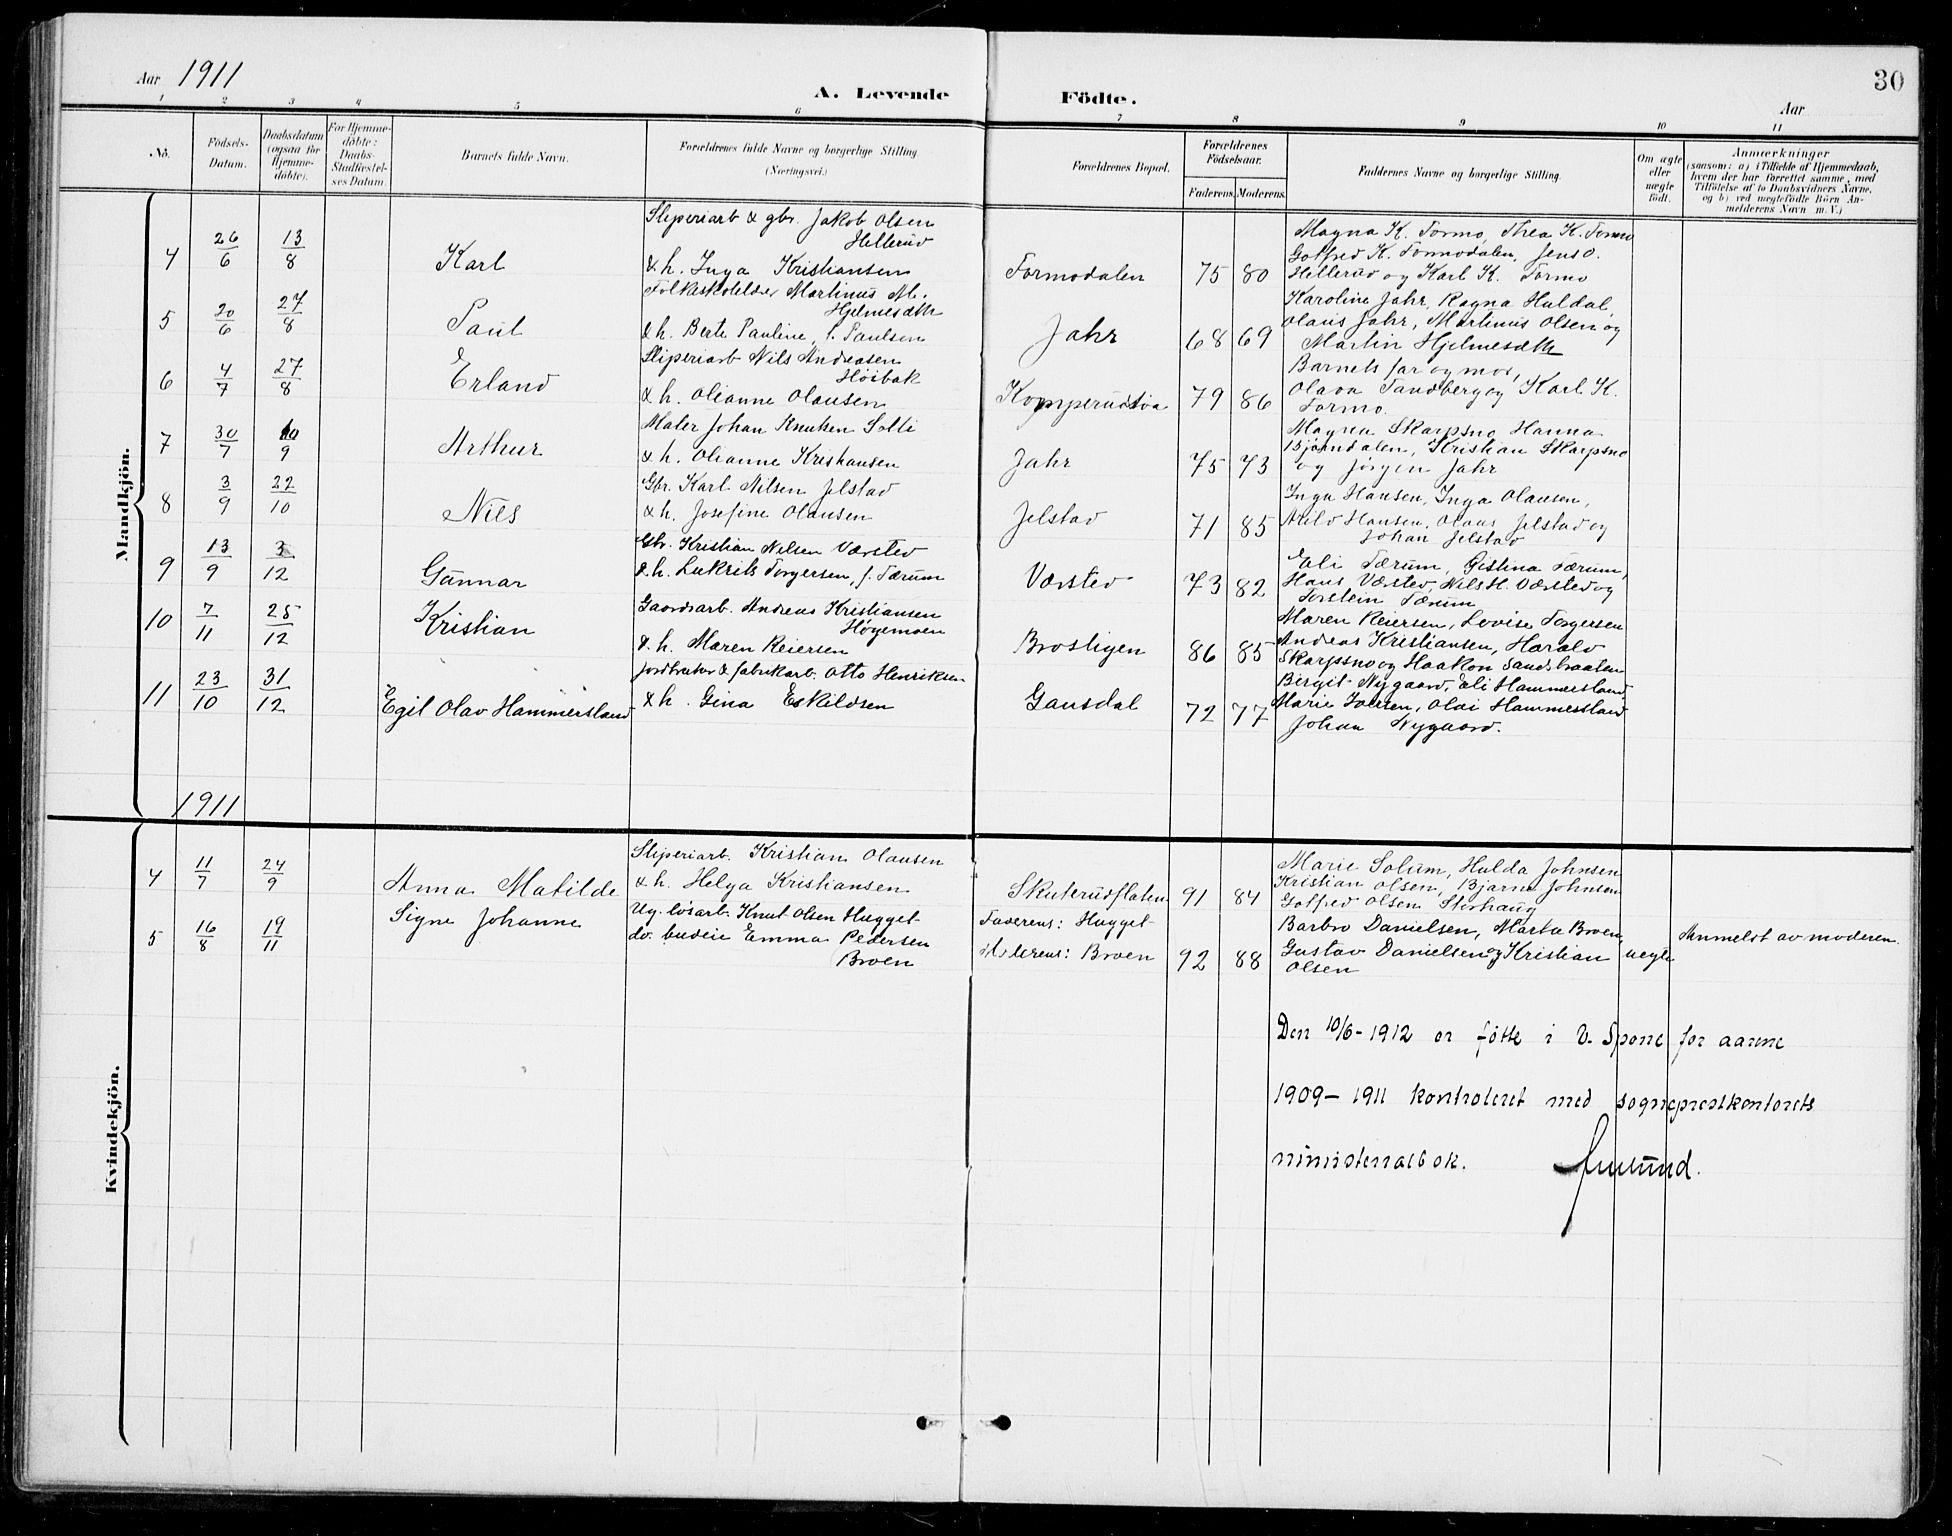 Aar 1911
A. Levende Födte.
Aar
30
1 2 3 4 5 6 7 8 9 10 11
No.
Födsels-
Datum.
Daabsdatum
(ogsaa for
Hjemme-
döbte).
For Hjemme-
döbte:
Daabs-
Stadfæstel-
ses Datum.
Barnets fulde Navn.
Forældrenes fulde Navne og borgerlige Stilling
(Næringsvei.)
Forældrenes Bopæl.
Forældrenes
Födselsaar.
Faderens. Moderens.
Faddernes Navne og borgerlige Stilling.
Om ægte
eller
uægte
födt.
Anmærkninger
(saasom: a) i Tilfælde af Hjemmedaab,
hvem der har forrettet samme, med
Tilföielse af to Daabsvidners Navne,
og b) ved uægtefödte Börn An-
melderens Navn m. V.)
Mandkjön.
4 26/6 13/8 Karl
Sliperiarb & gbr. Jakob Olsen
Hellerud
& h. Inga Kristiansen
Formodalen 75 80
Magna K. Formo, Thea K. Formo
Gotfred K. Formodalen, Jens O.
Hellerud og Karl K. Formo
5 20/6 27/8 Paul
Folkeskolelærer Martinus M.
Hjelmesæth
& h. Berte Pauline, f. Paulsen
Jahr 68 69
Karoline Jahr, Ragna Huldal,
Olaus Jahr, Martinus Olsen og
Martin Hjelmesæth
6 4/7 27/8 Erland
Sliperiarb Nils Andreasen
Höibak
& h. Olianne Olausen
Komperudstøa 79 86
Barnets far og mor,
Olava Sandberg og Karl K.
Formo.
7 30/7 10/9 Arthur
Maler Johan Knutsen Solli
& h. Olianne Kristiansen
Jahr 75 73
Magna Skarpsno Hanna
Bjørndalen, Kristian Skarpsno
og Jörgen Jahr
8 3/9 22/10 Nils
Gbr. Karl Nilsen Jelstad
& h. Josefine Olausen
Jelstad 71 85
Inga Hansen, Inga Olausen,
Arild Hansen, Olaus Jelstad og
Johan Jelstad
9 13/9 3/12 Gunnar
Gbr. Kristian Nilsen Værsted
& h. Lukrits Torgersen, f. Færum
Værsted 73 82
Eli Færum, Gistina Færum,
Hans Værsted, Nils H. Værsted og
Torstein Færum
10 7/11 25/12 Kristian
Gaardsarb. Andreas Kristiansen
Høgemoen
& h. Maren Reiersen
Brostigen 86 85
Maren Reiersen, Lovise Torgersen
Andreas Kristiansen, Harald
Skarpsno og Haakon Sandsbraaten
11 23/10 31/12 Egil Olav Hammersland
Jordbruker & fabrikarb. Otto Henriksen
& h. Gina Eskildsen
Gausdal 72 77
Birgit Nygaard, Eli Hammersland
Marie Iversen, Olai Hammersland
Johan Nygaard.
1911
Kvindekjön.
4 11/7 24/9 Anna Matilde
Sliperiarb. Kristian Olausen
& h. Helga Kristiansen
Skuterudflaten 91 84
Marie Solum, Hulda Johnsen
Kristian Olsen, Bjarne Johnsen
Gotfred Olsen Storhaug
5 16/8 19/11 Signe Johanne
Ug. løsarb. Knut Olsen Hugget
do. budeie Emma Pedersen
Broen
Faderens: Hugget
Moderens: Broen 92 88
Barbro Danielsen, Marta Broen,
Gustav Danielsen og Kristian
Olsen
uegte
Anmeldt av moderen.
Den 10/6 - 1912 er føtte i V. Spone for aarene
1909 - 1911 kontroleret med sogneprestkontorets
ministerialbok.